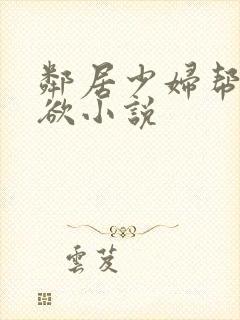 鄰居少婦幫
欲小說
雲芨